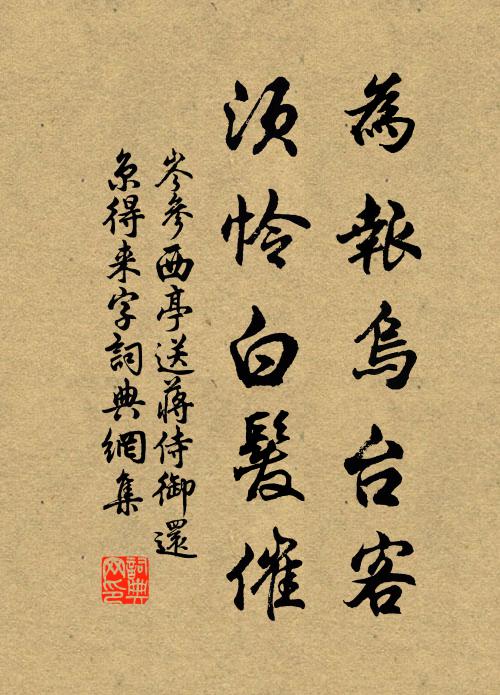 為報烏台客
須怜白髮催
岑參西亭送蔣侍御還
京得来字詞典網集
詞典網印